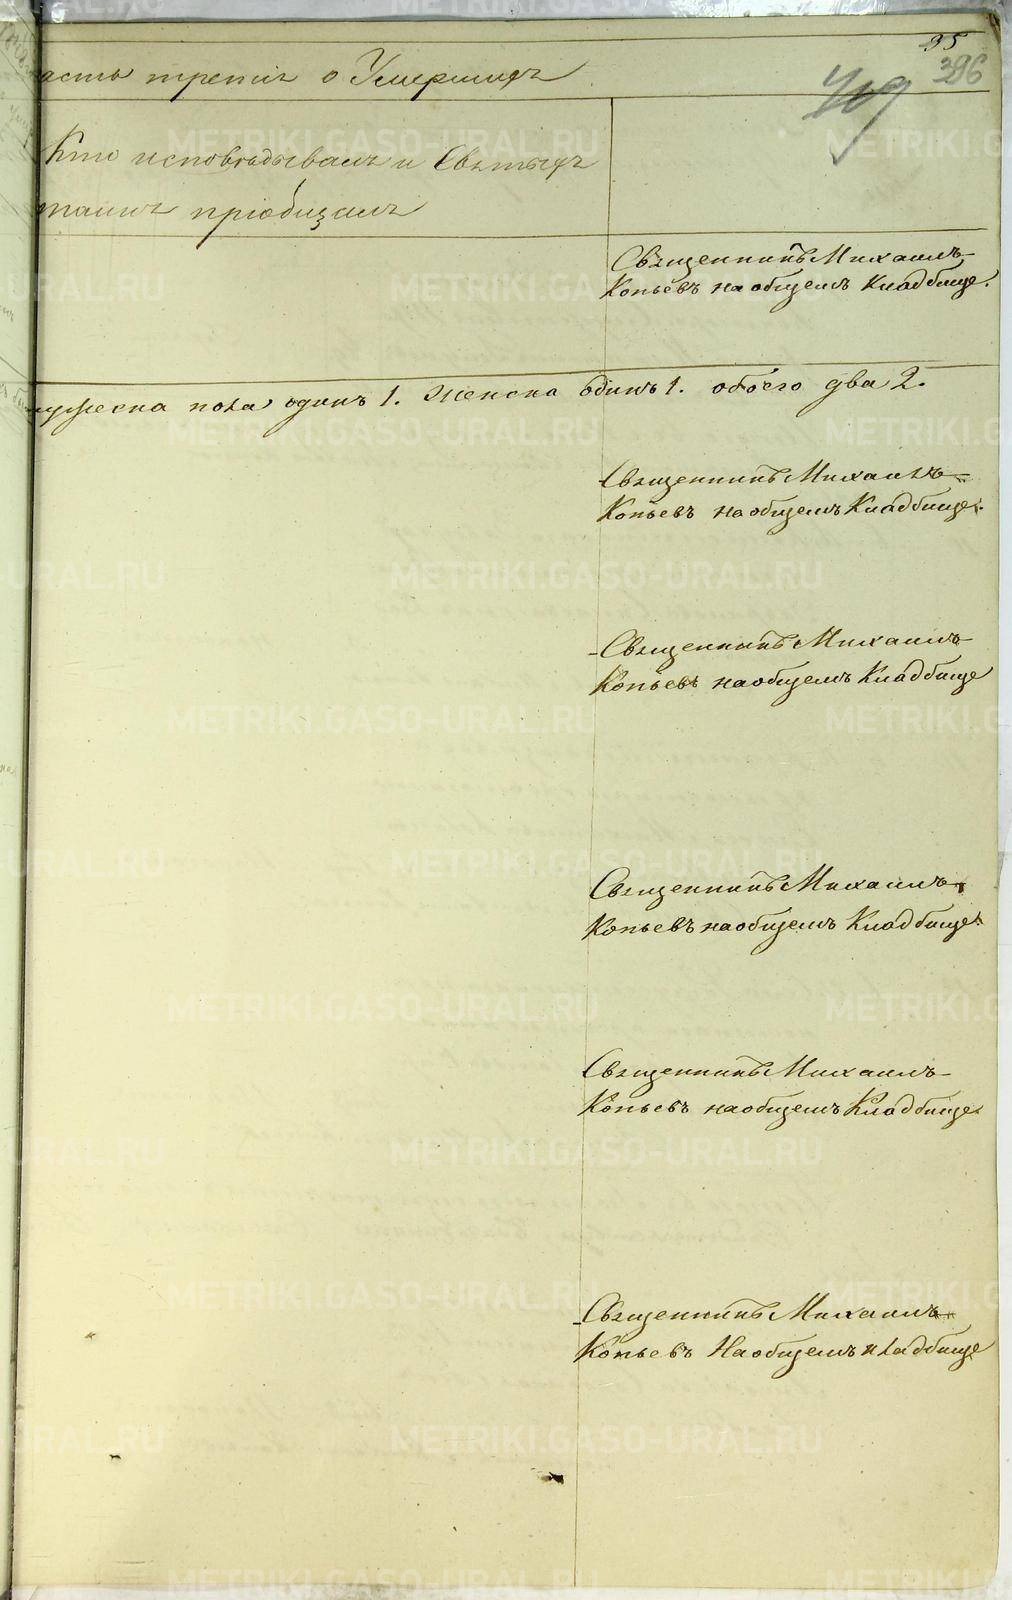 95
396
409
асть третiя о Умершихъ
Кто исповѣдывалъ и Святыхъ
таинъ прiобщалъ
Священникъ Михаилъ
Копьевъ на общемъ Кладбище.
мужеска пола одинъ 1. Женска одинъ 1. обоего два 2.
Священникъ Михаилъ
Копьевъ на общемъ Кладбище.
Священникъ Михаилъ
Копьевъ на общемъ Кладбище
Священникъ Михаилъ
Копьевъ на общемъ Кладбище.
Священникъ Михаилъ
Копьевъ на общемъ Кладбище
Священникъ Михаилъ
Копьевъ На общемъ кладбище